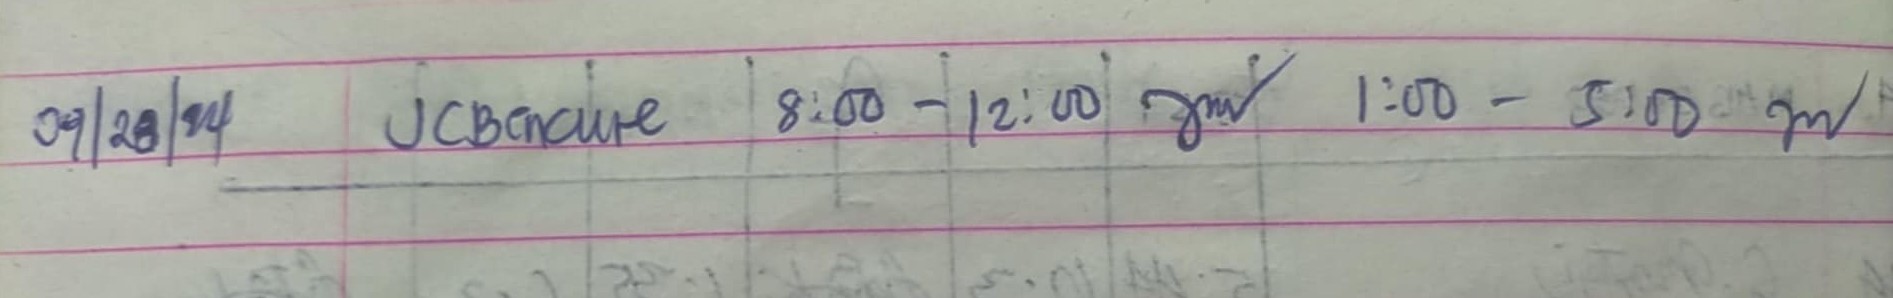 09/28/24 JCBencure 8:00 - 12:00 1:00 - 5:00